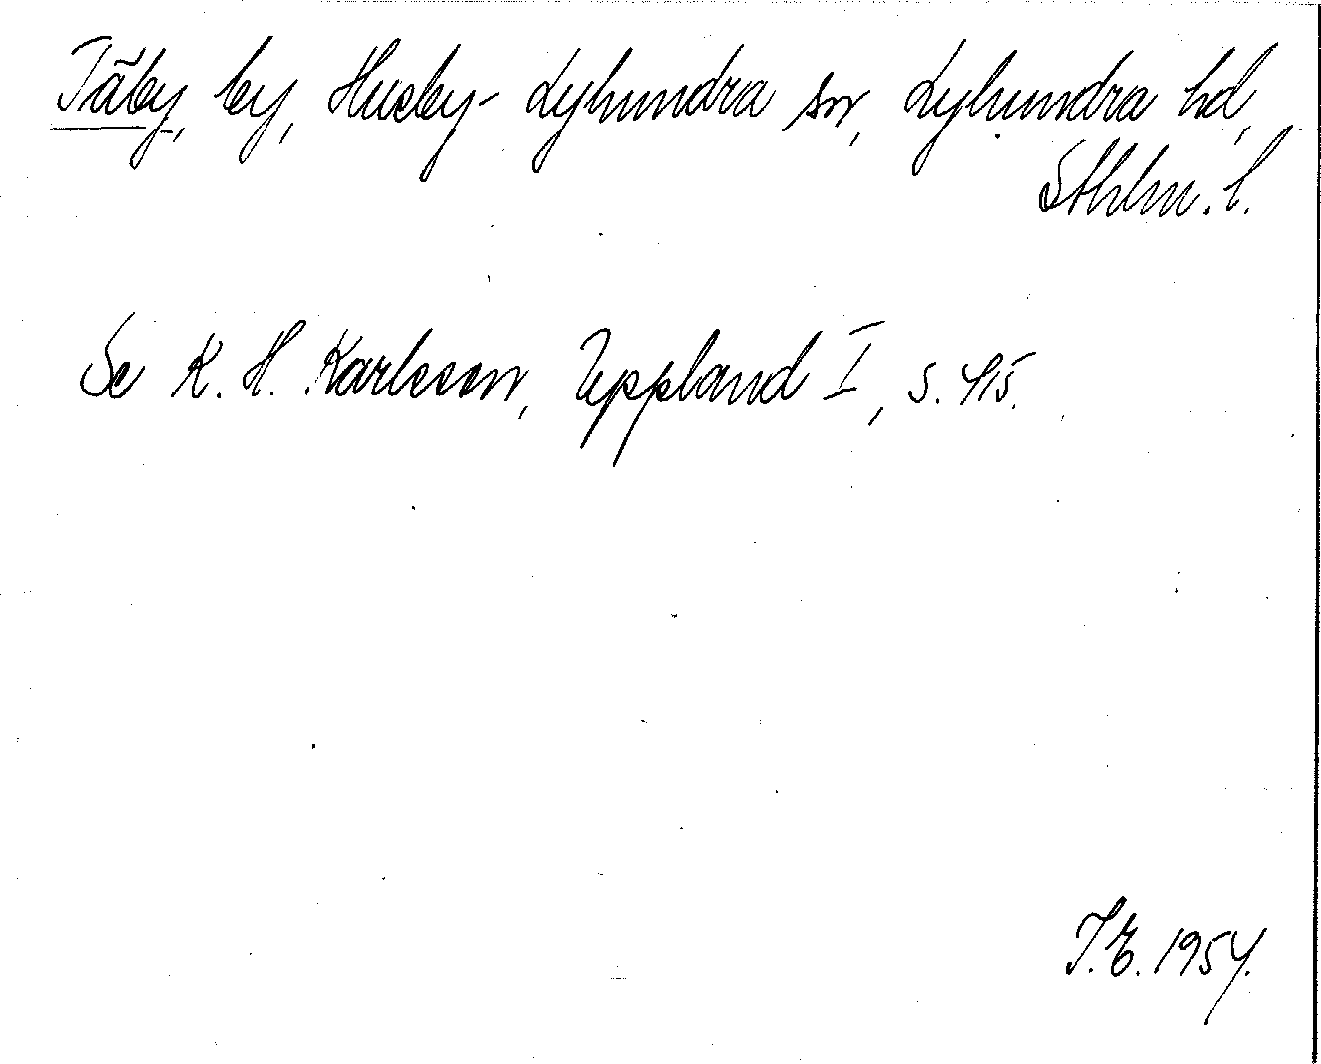 Täby, by, Husby-Lyhundra sn, Lyhundra hd,
Sthlm. l.
Se K. H. Karlsson, Uppland I, s. 415.
I. E. 1954.